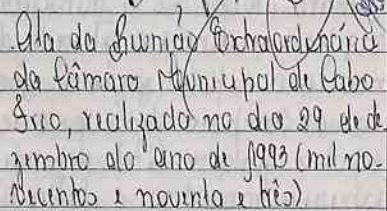 Ata da Reunião Extraordinária
da Câmara Municipal de Cabo
Frio, realizada no dia 29 de de
zembro do ano de 1993 (mil no-
vecentos e noventa e três).